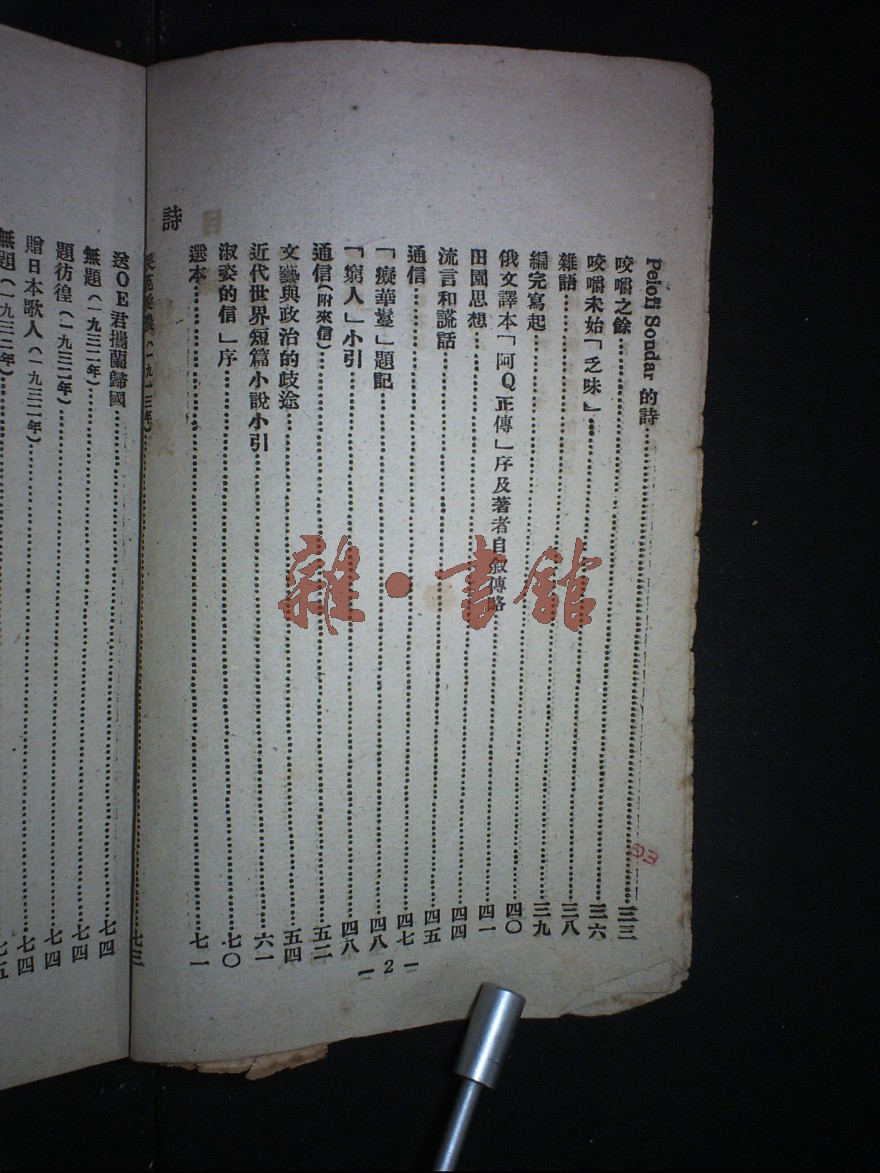 的詩 三三
咬嚼之餘 三六
咬嚼未始「乏味」 三八
雜語 三九
編完寫起 四〇
俄文譯本「阿Q正傳」序及著者自叙傳略 四一
田園思想 四四
流言和謊話 四五
通信 四七
「癡華鬘」題記 四八
「窮人」小引 四八
通信(附來信) 五二
文藝與政治的歧途 五四
近代世界短篇小說小引 六一
淑姿的信」序 七〇
選本 七一
— 2 —
詩
(一九一三年) 七三
送OE君攜蘭歸國 七四
無題(一九三一年) 七四
題彷徨(一九三二年) 七四
贈日本歌人(一九三二年) 七四
無題(一九三二年) 七五
雜·書館